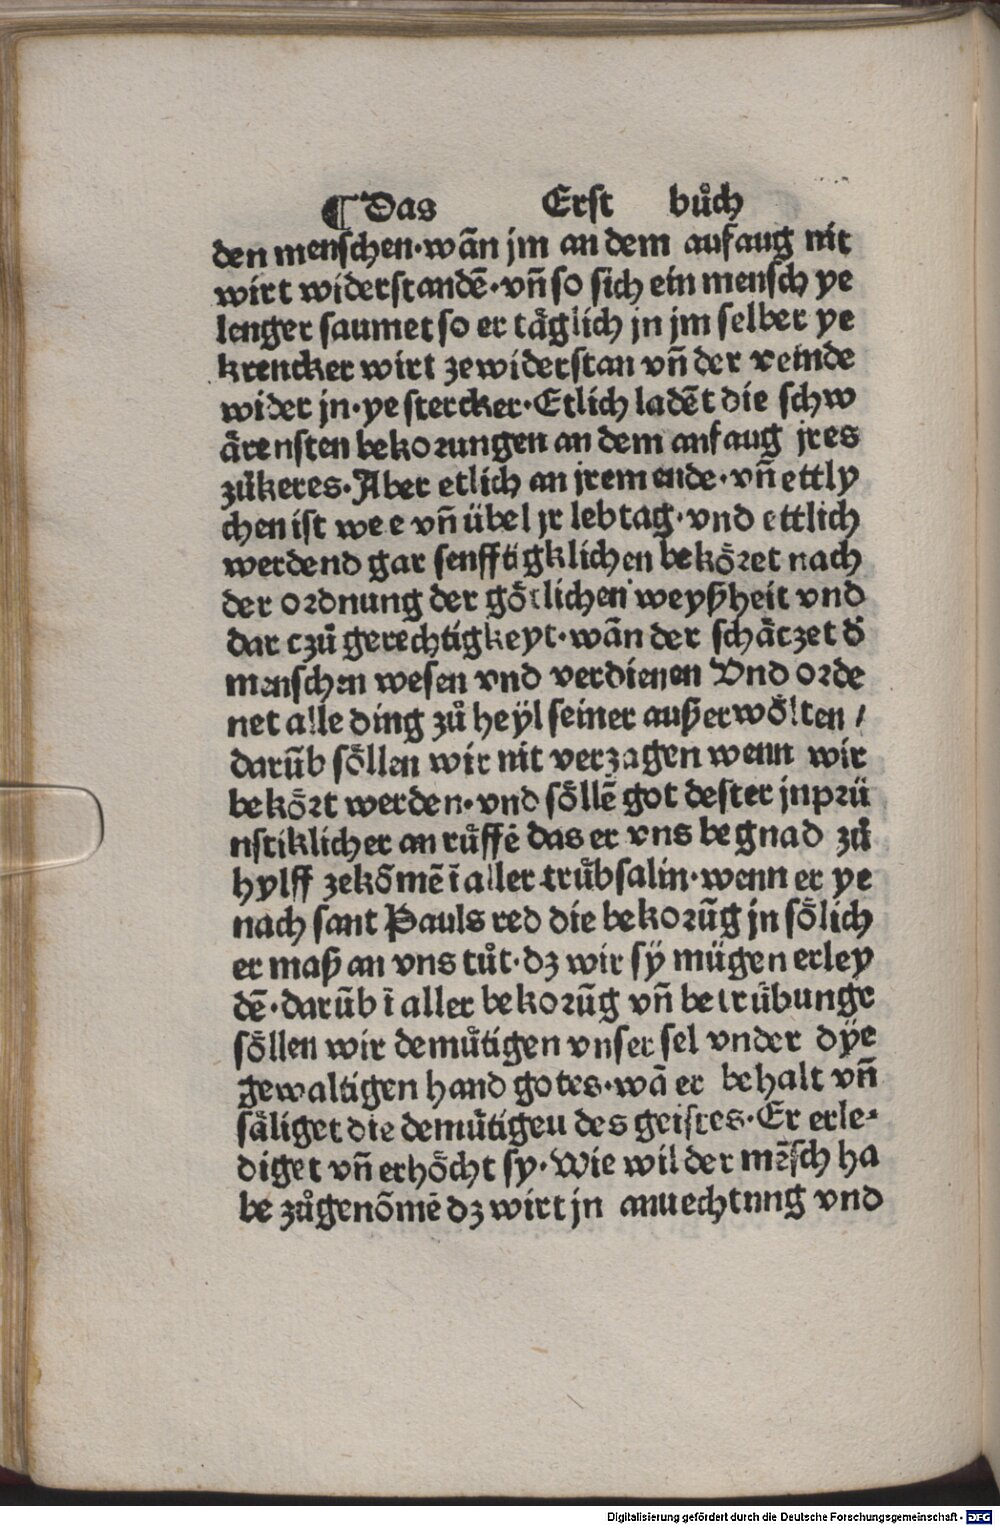 ¶ Das Erst bůch
den menschen·wān jm an dem anfaug nit
wirt widerstandē·vn̄ so sich ein mensch ye
lenger saumet so er tåglich jn jm selber ye
krencker wirt ze widerstan vn̄ der veinde
wider jn·ye stercker·Etlich ladēt die schw
ärensten bekorungen an dem anfaug jres
zůkeres·Aber etlich an jrem ende·vn̄ ettly
chen ist wee vn̄ übel jr lebtag·vnd ettlich
werdend gar senfftigklichen bekȯret nach
der ordnung der gȯtlichen weyßheit vnd
dar czů gerechtigkeyt·wān der schåtzet d̄
menschen wesen vnd verdienen Vnd orde
net alle ding zů heÿl seiner außerwȯlten /
darūb sȯllen wir nit verzagen wenn wir
bekȯrt werden·vnd sȯllē got dester jnprü
nstiklicher an růffē das er vns begnad zů
hylff zekōmē ī aller trůbsalin·wenn er ye
nach sant Pauls red die bekorūg jn sȯlich
er maß an vns tůt·dz wir sÿ mügen erley
dē·darūb ī aller bekorūg vn̄ betrůbunge
sȯllen wir demůtigen vnser sel vnder dÿe
gewaltigen hand gotes·wā er behalt vn̄
såliget die demůtigeu des geistes·Er erle⸗
diget vn̄ erhȯcht sy·Wie wil der mēsch ha
be zůgenōmē dz wirt jn anuechtnng vnd
Digitalisierung gefördert durch die Deutsche Forschungsgemeinschaft - DFG